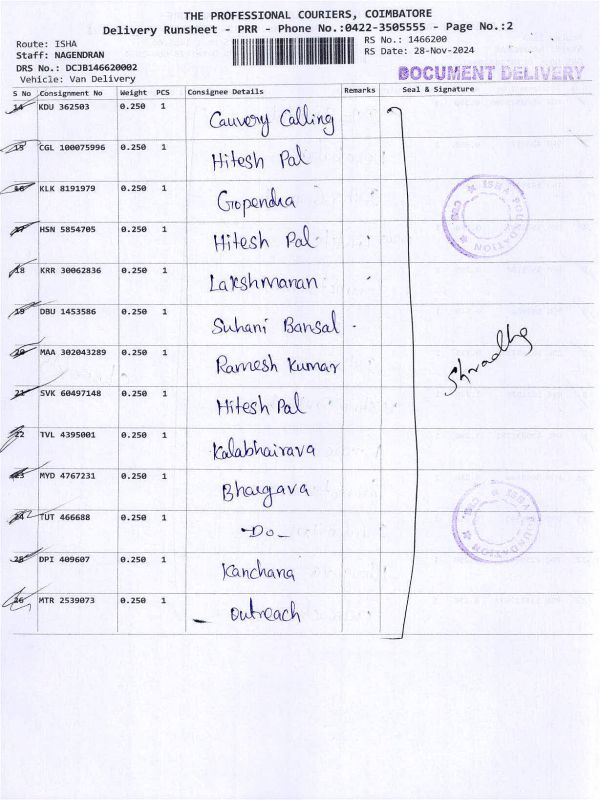 THE PROFESSIONAL COURIERS, COIMBATORE
Delivery Runsheet - PRR - Phone No.:0422-3505555 - Page No.:2
Route: ISHA
RS No.: 1466200
Staff: NAGENDRAN
RS Date: 28-Nov-2024
DRS No.: DCJB146620002
DOCUMENT DELIVERY
Vehicle: Van Delivery
S No Consignment No Weight PCS Consignee Details Remarks Seal & Signature
14 KDU 362503 0.250 1 Cauvery Calling
15 CGL 100075996 0.250 1 Hitesh Pal
16 KLK 8191979 0.250 1 Gopendra
ISHA FOUNDATION
17 HSN 5854705 0.250 1 Hitesh Pal
18 KRR 30062836 0.250 1 Lakshmanan
19 DBU 1453586 0.250 1 Suhani Bansal
20 MAA 302043289 0.250 1 Ramesh Kumar
Shraadha
21 SVK 60497148 0.250 1 Hitesh Pal
22 TVL 4395001 0.250 1 Kalabhairava
23 MYD 4767231 0.250 1 Bhargava
24 TUT 466688 0.250 1 -Do-
ISHA FOUNDATION
25 DPI 409607 0.250 1 Kanchana
26 MTR 2539073 0.250 1 Outreach